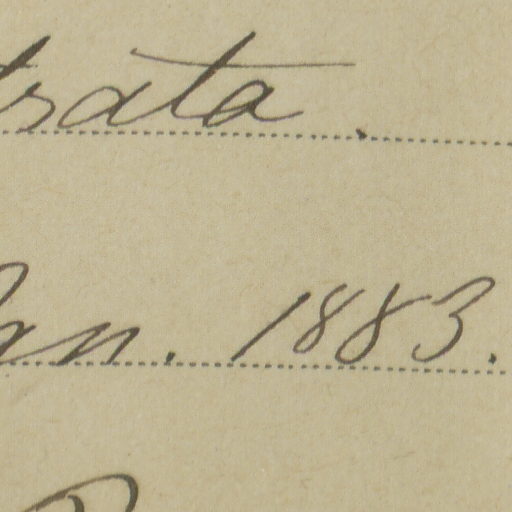 trata.
Jan. 1883.